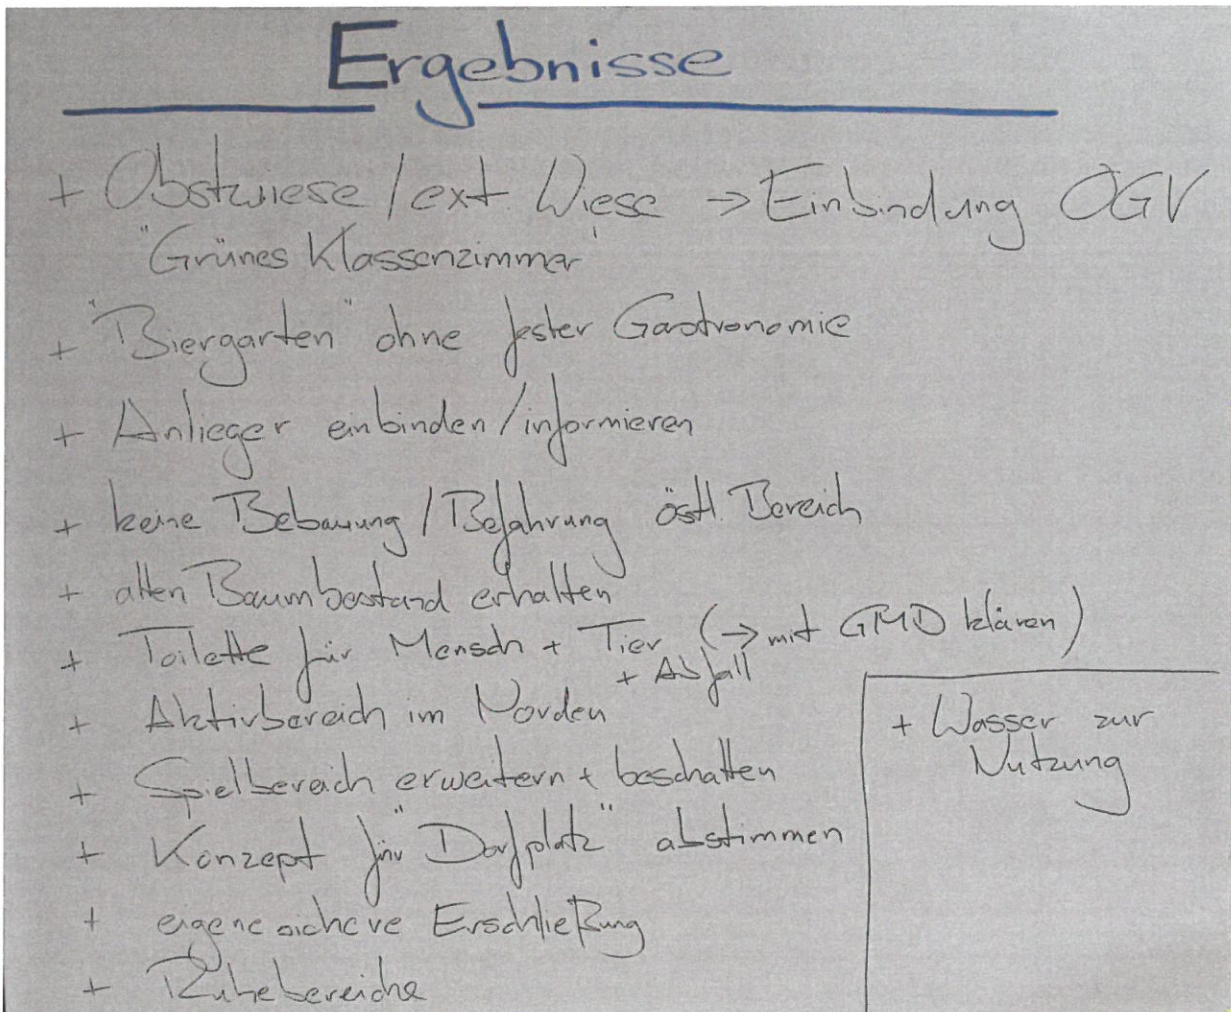 Ergebnisse
+ Obstwiese / ext. Wiese → Einbindung OGV
"Grünes Klassenzimmer"
+ "Biergarten" ohne fester Gastronomie
+ Anlieger einbinden / informieren
+ keine Bebauung / Befahrung östl. Bereich
+ alten Baumbestand erhalten
+ Toilette für Mensch + Tier (→ mit GMD klären)
+ Abfall
+ Aktivbereich im Norden
+ Spielbereich erweitern + beschatten
+ Konzept für "Dorfplatz" abstimmen
+ eigene sichere Erschließung
+ Ruhebereiche
+ Wasser zur
Nutzung